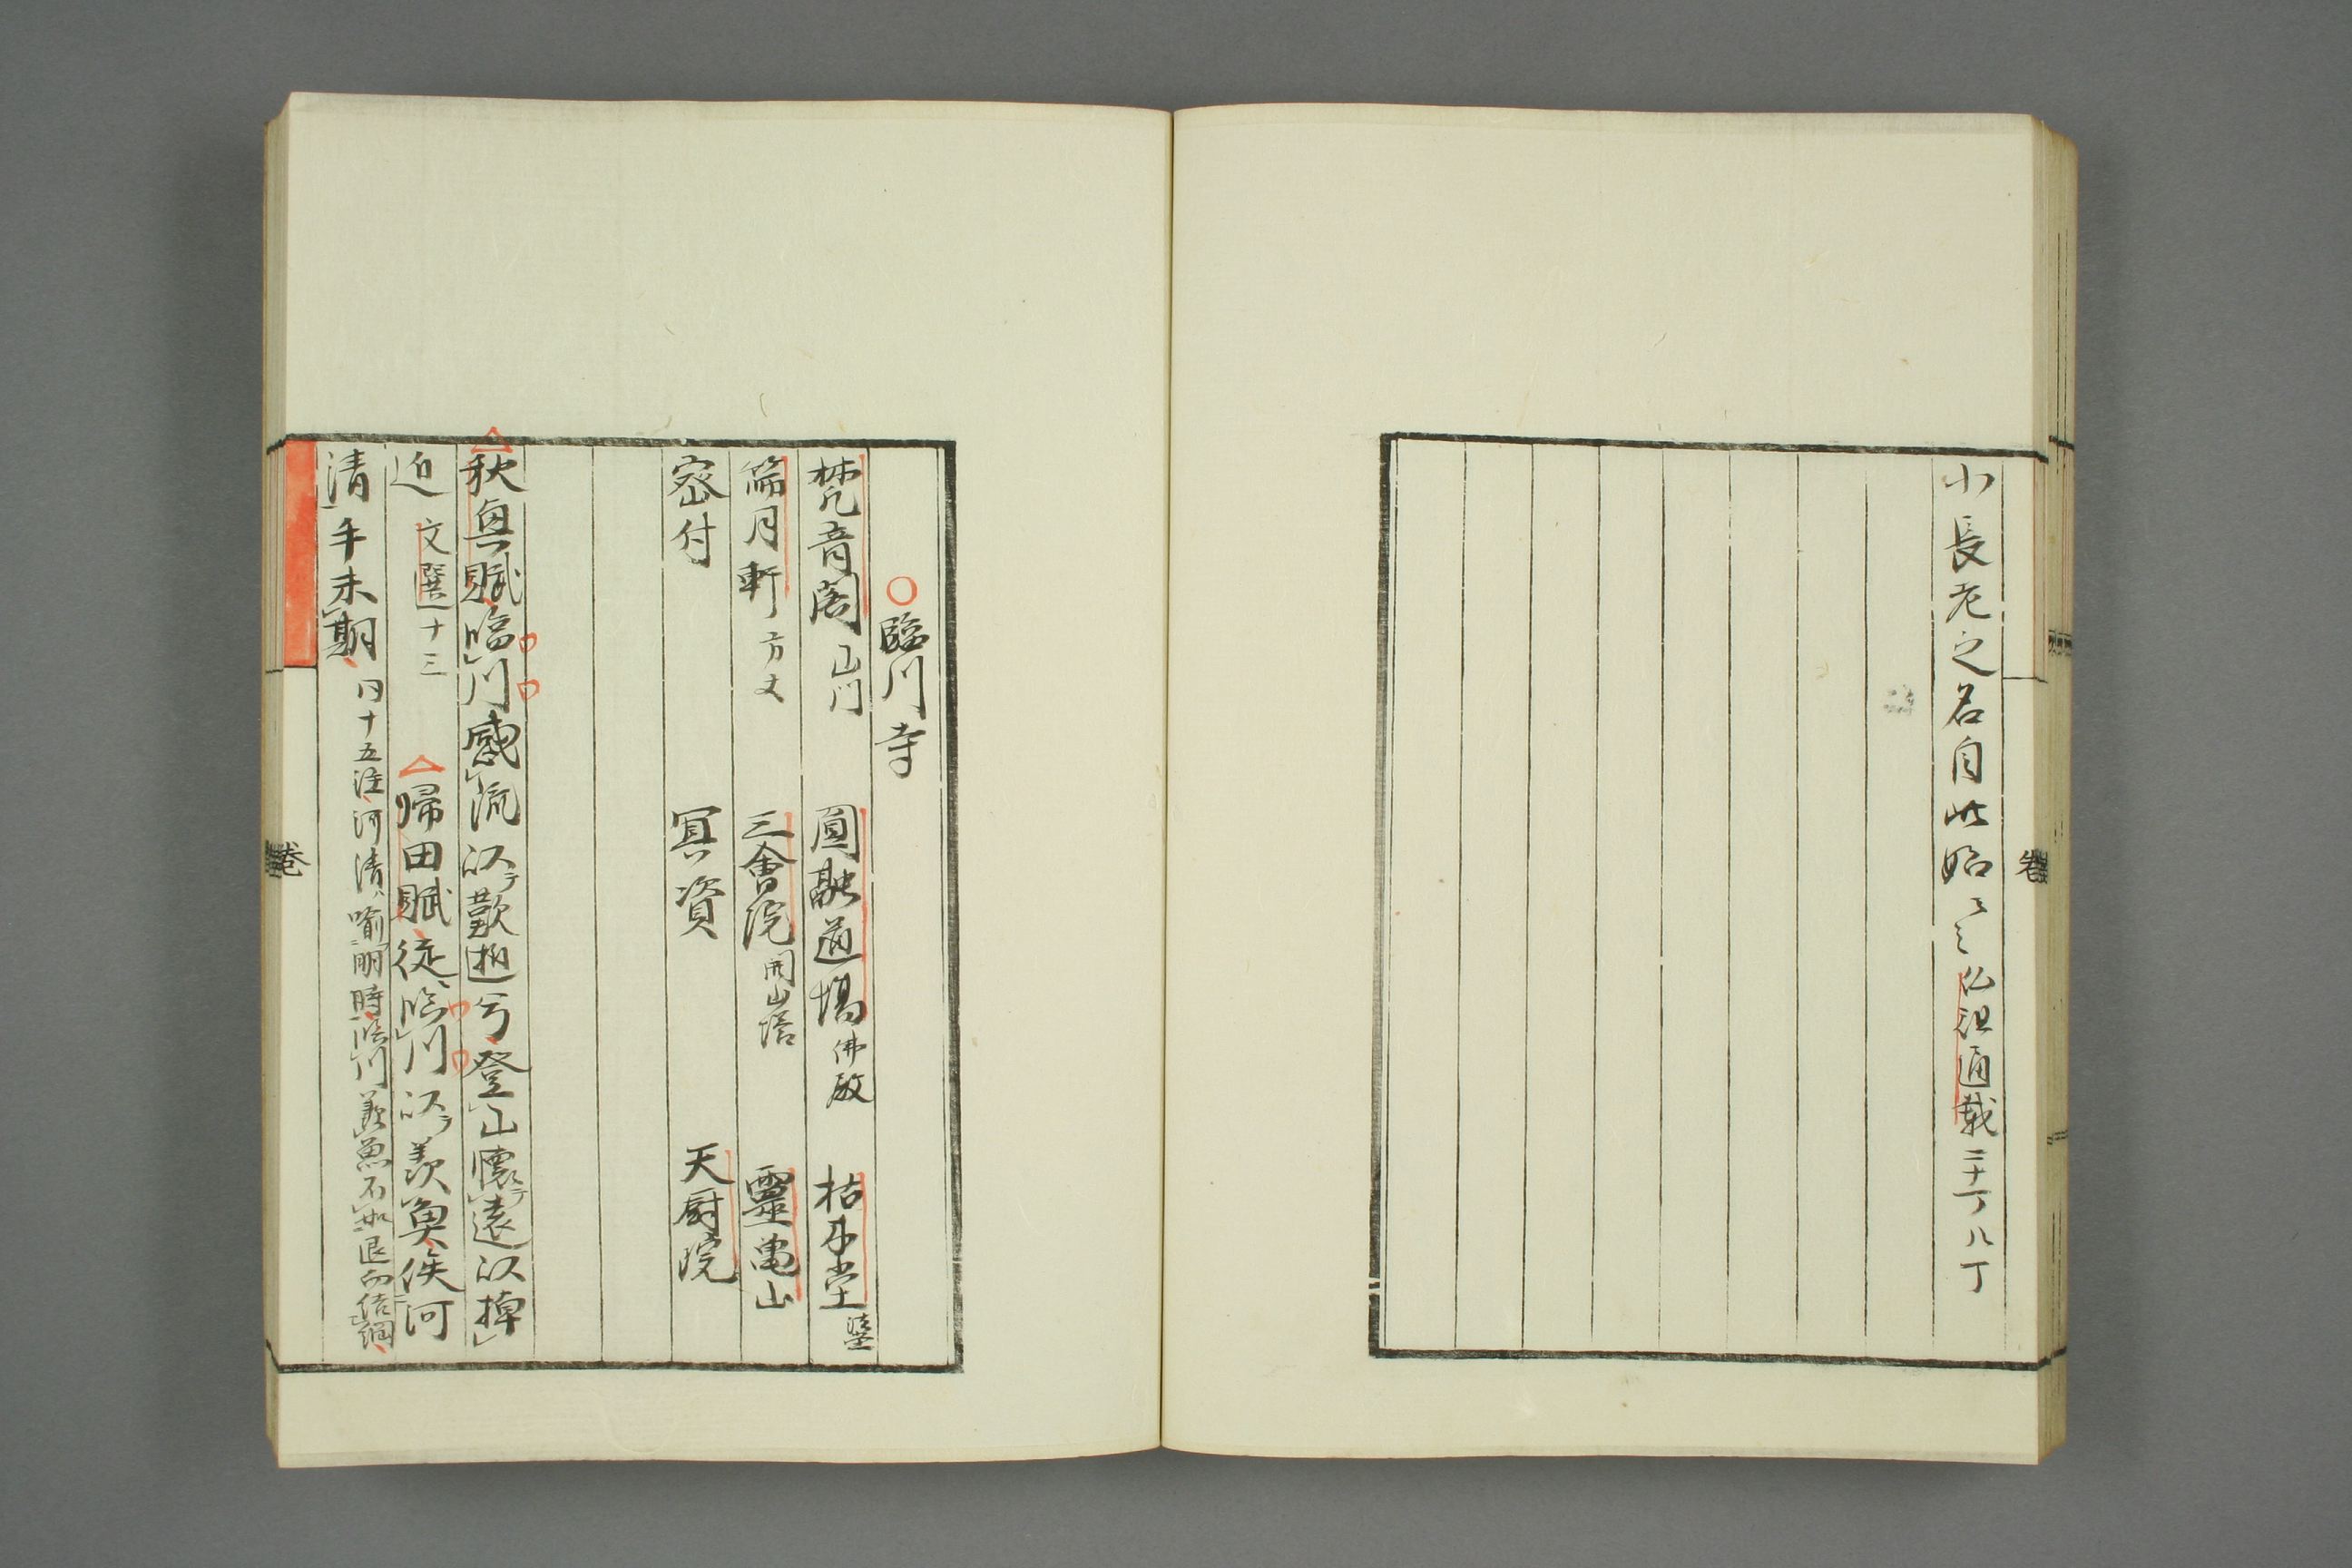 小長老之名自此始 仏祖通載二十一ノ八丁
卷
○臨川寺
梵音閣山門 圓融道場佛殿 枯木堂
篩月軒方丈 三會院開山塔 靈亀山
密付 冥資 天厨院
△秋興賦臨川感流以テ歎逝兮登山懷テ遠以悼
近 文選十三 △歸田賦徒臨川以テ羨魚俟河
清乎未期 同十五注河清喩明時臨川羨魚不如退而結網
卷